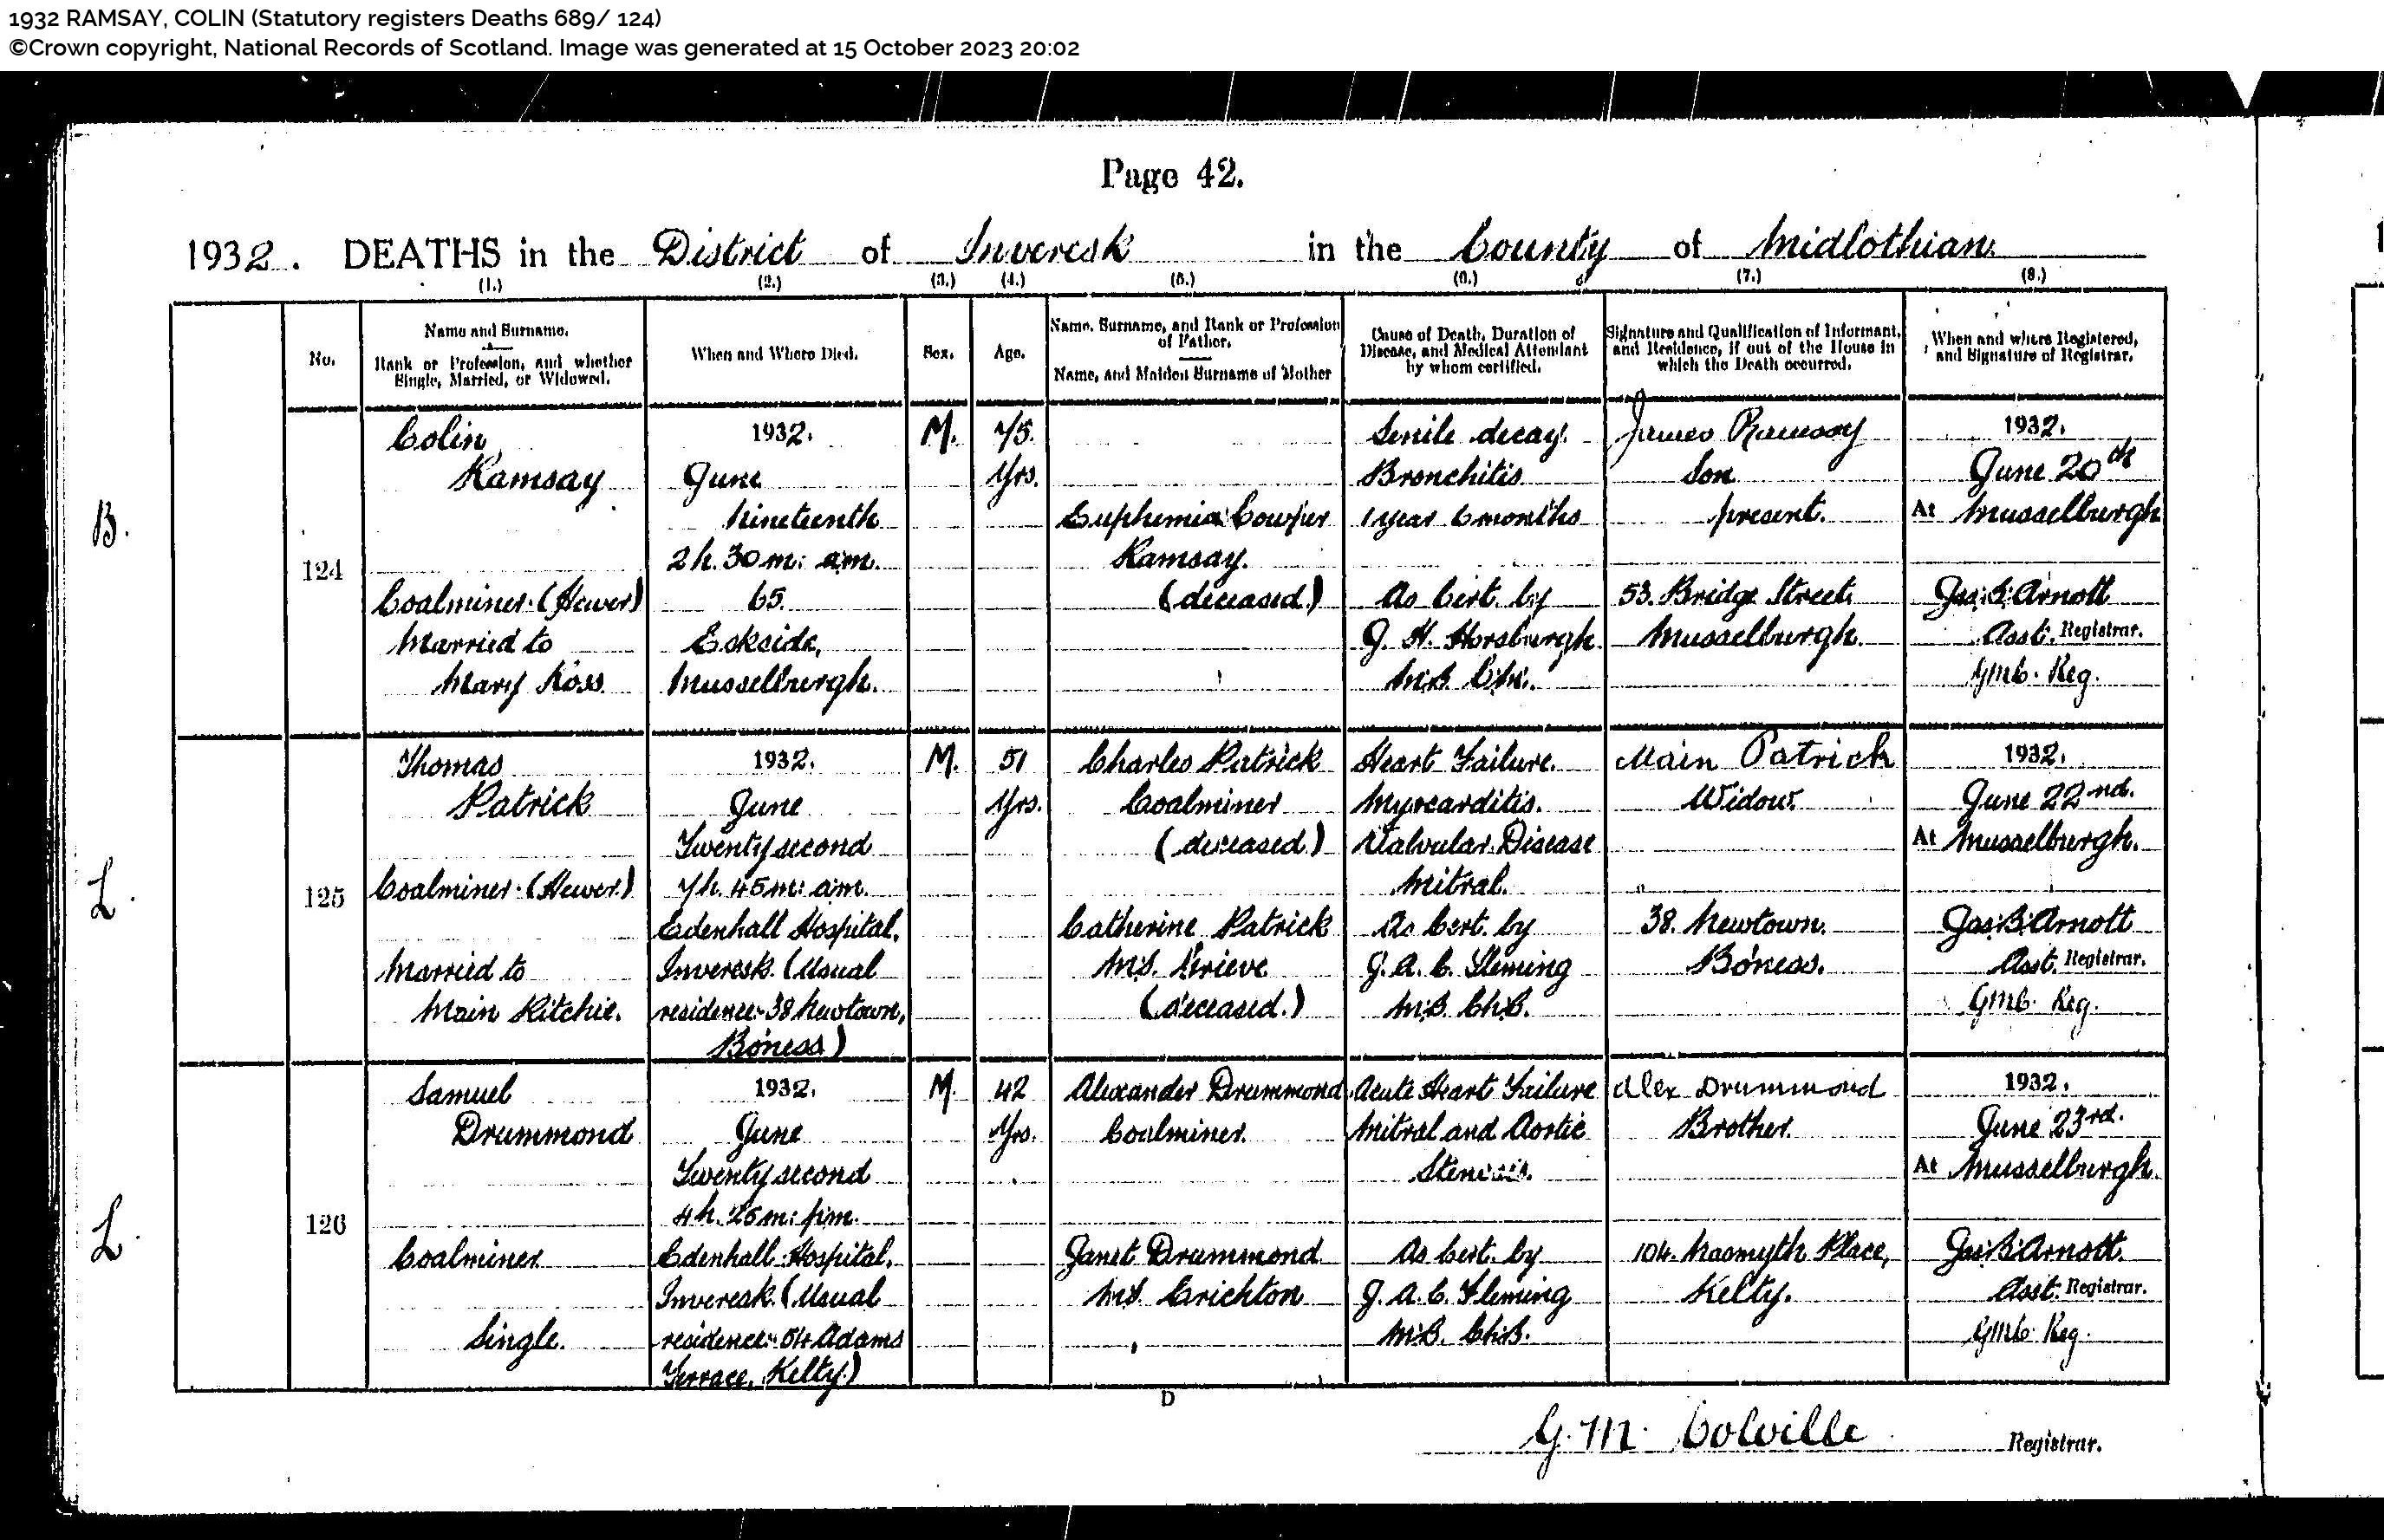 1932 RAMSAY, COLIN (Statutory registers Deaths 689/ 124)
©Crown copyright, National Records of Scotland. Image was generated at 15 October 2023 20:02
Page 42.
1932. DEATHS in the District of Inveresk in the County of Midlothian.
(1.) (2.) (3.) (4.) (5.) (6.) (7.) (8.)
No.
Name and Surname.
Rank or Profession, and whether
Single, Married, or Widowed.
When and Where Died.
Sex.
Age.
Name, Surname, and Rank or Profession
of Father.
Name, and Maiden Surname of Mother
Cause of Death, Duration of
Disease, and Medical Attendant
by whom certified.
Signature and Qualification of Informant,
and Residence, if out of the House in
which the Death occurred.
When and where Registered,
and Signature of Registrar.
B.
124
Colin
Ramsay
Coalminer (Hewer)
Married to
Mary Ross
1932.
June
Nineteenth
2 h. 30 m. a.m.
65
Eskside,
Musselburgh.
M.
75
Yrs.
Euphemia Cowper
Ramsay.
(deceased)
Senile decay.
Bronchitis
1 year 6 months
As Cert. by
J. H. Horsburgh
M.B. C.M.
James Ramsay
Son
present.
53. Bridge Street
Musselburgh.
1932.
June 20th
At Musselburgh
Jas. B. Arnott
Asst. Registrar.
GMC. Reg.
L.
125
Thomas
Patrick
Coalminer (Hewer)
Married to
Main Ritchie.
1932.
June
Twenty second
7 h. 45 m. a.m.
Edenhall Hospital,
Inveresk. (Usual
residence 38 Newtown,
Bo'ness)
M.
51
Yrs.
Charles Patrick
Coalminer
(deceased)
Catherine Patrick
M.S. Grieve
(deceased.)
Heart Failure.
Myocarditis.
Valvular Disease
Mitral.
As Cert. by
J. A. C. Fleming
M.B. Ch.B.
Main Patrick
Widow.
38. Newtown.
Bo'ness.
1932.
June 22nd.
At Musselburgh.
Jas. B. Arnott
Asst. Registrar.
GMC. Reg.
L.
126
Samuel
Drummond
Coalminer
Single.
1932.
June
Twenty second
4 h. 25 m. p.m.
Edenhall Hospital,
Inveresk. (Usual
residence 54 Adams
Terrace, Kelty)
M.
42
Yrs.
Alexander Drummond
Coalminer.
Janet Drummond
M.S. Crichton
Acute Heart Failure
Mitral and Aortic
Stenosis.
As Cert. by
J. A. C. Fleming
M.B. Ch.B.
Alex Drummond
Brother.
104. Nasmyth Place,
Kelty.
1932.
June 23rd.
At Musselburgh.
Jas. B. Arnott.
Asst. Registrar.
GMC. Reg.
D
G. M. Colville Registrar.